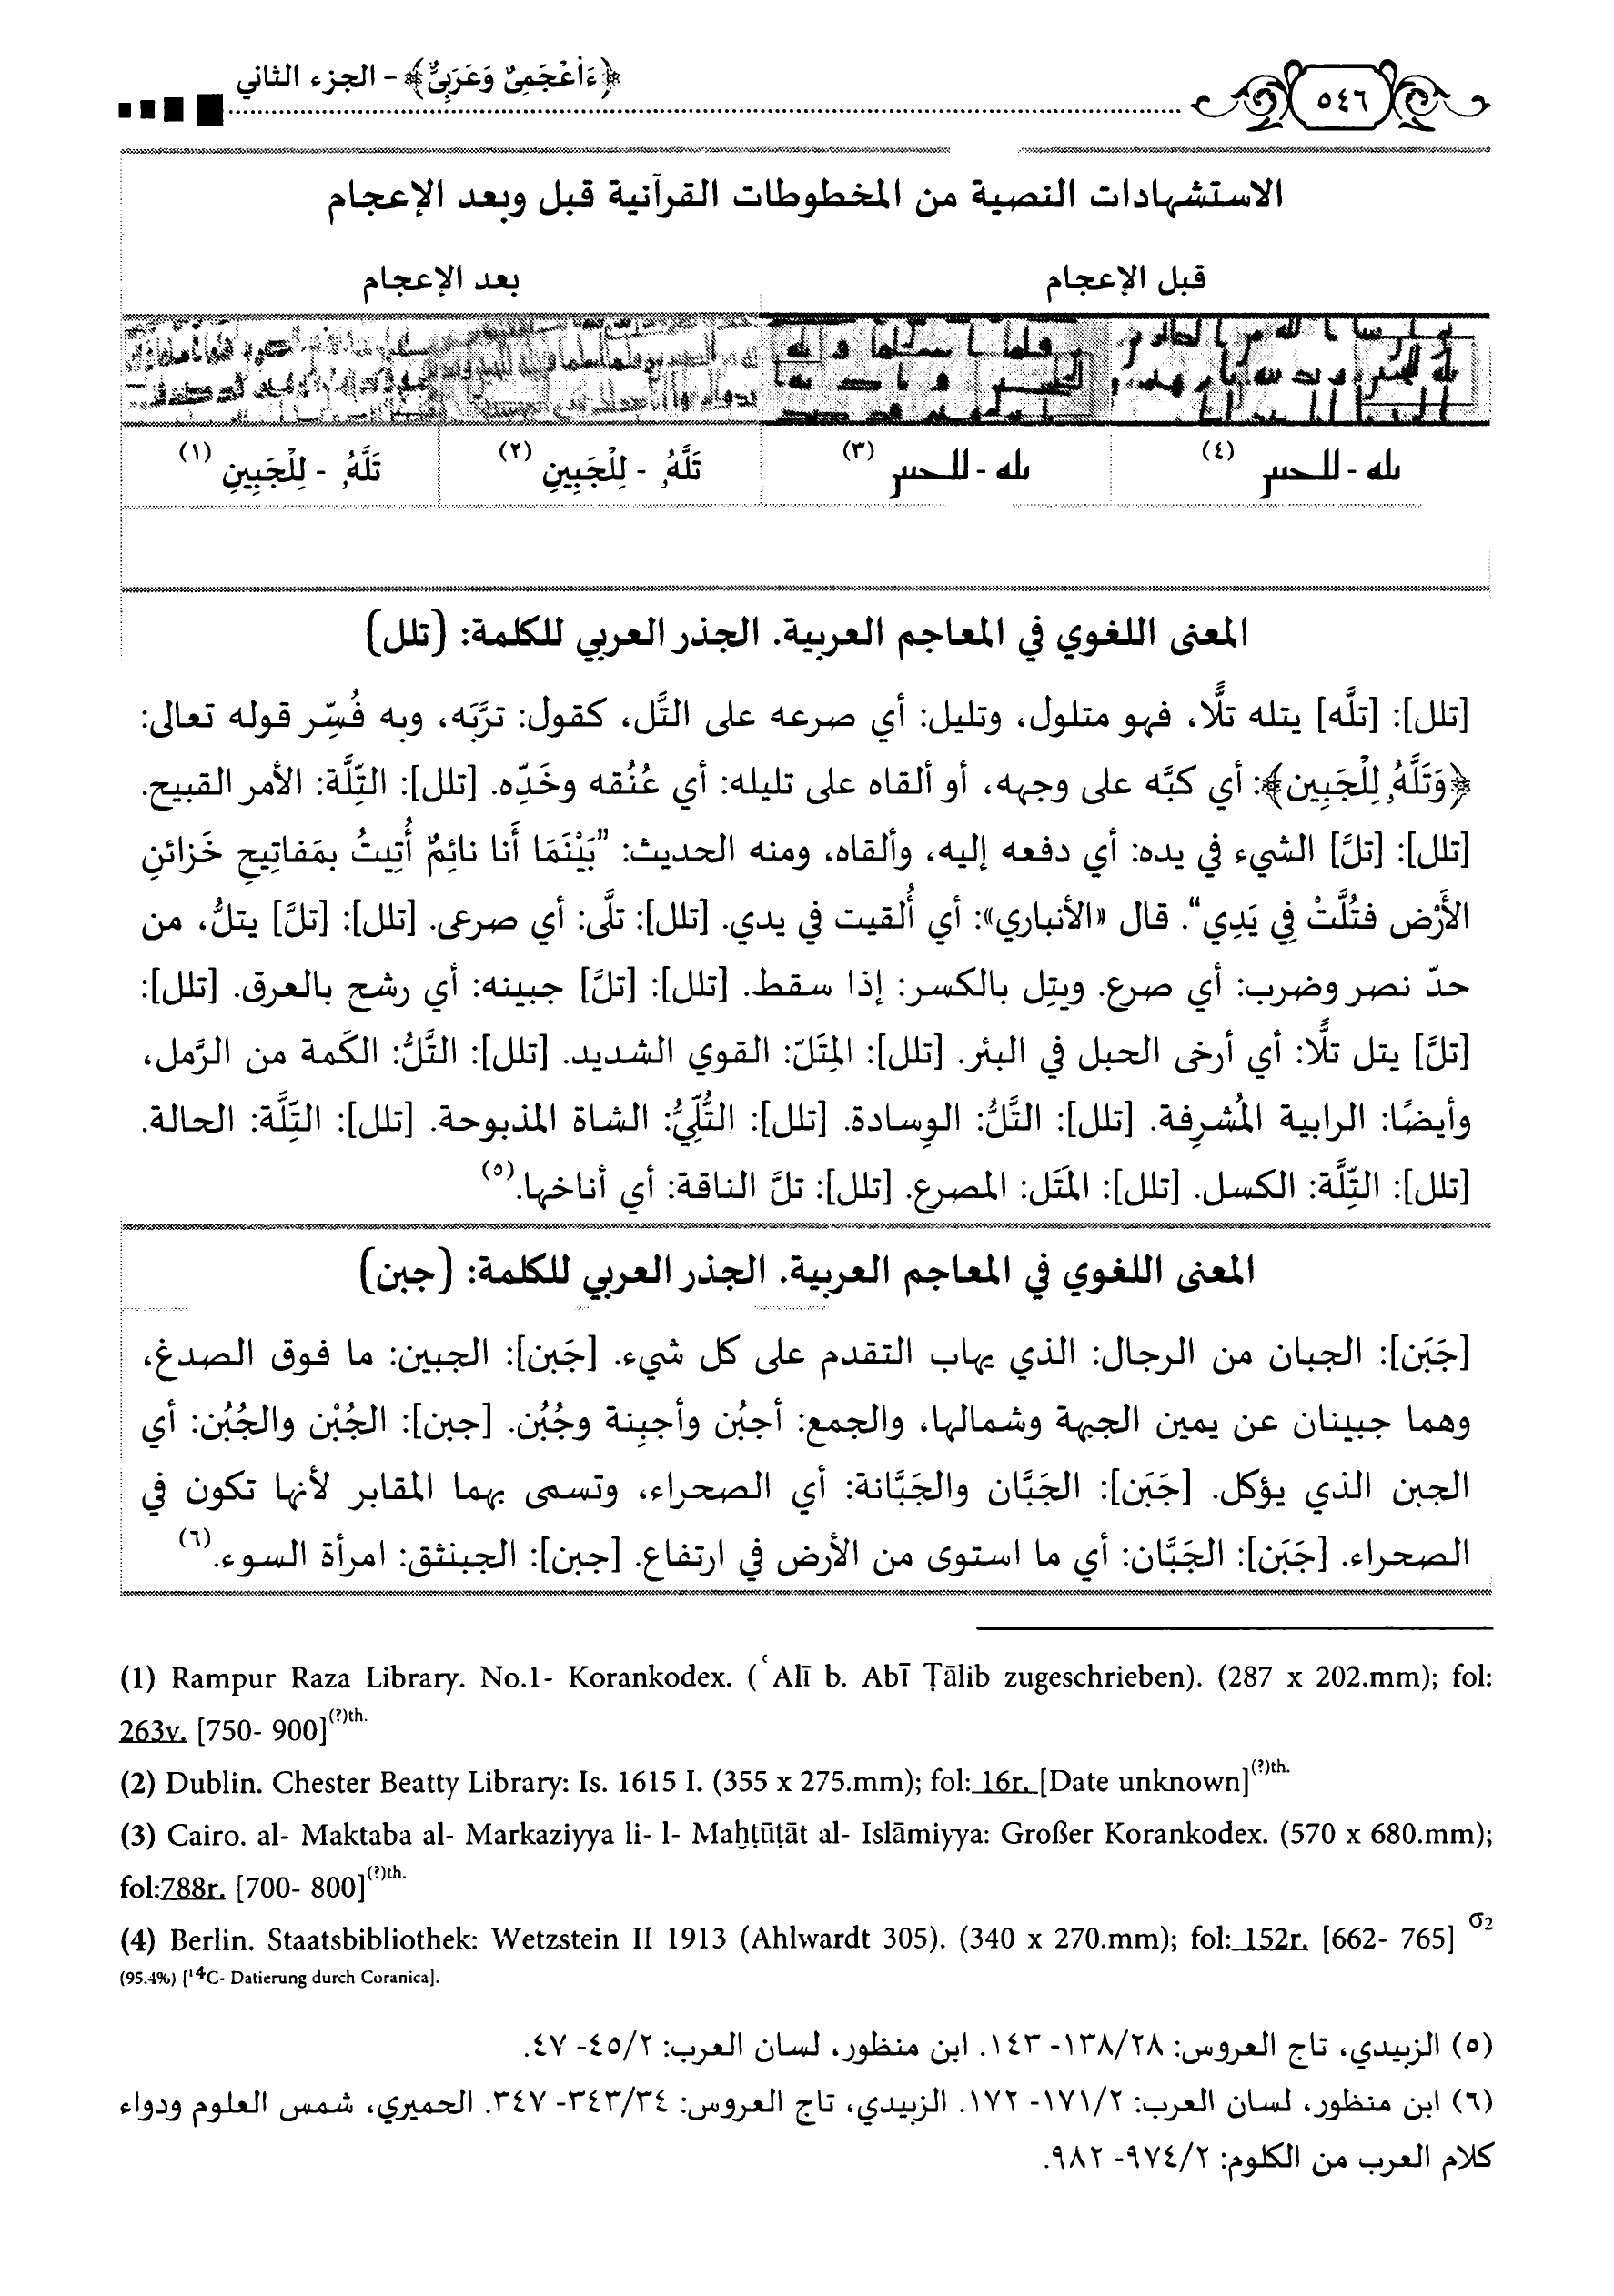 ﴿ءَأَعْجَمِىٌّ وَعَرَبِىٌّ﴾ - الجزء الثاني
٥٤٦
الاستشهادات النصية من المخطوطات القرآنية قبل وبعد الإعجام
قبل الإعجام
بعد الإعجام
ٮله - للحٮٮں (٤)
ٮله - للحٮٮں (٣)
تَلَّهُۥ - لِلْجَبِينِ (٢)
تَلَّهُۥ - لِلْجَبِينِ (١)
المعنى اللغوي في المعاجم العربية. الجذر العربي للكلمة: (تلل)
[تلل]: [تلَّه] يتله تلًّا، فهو متلول، وتليل: أي صرعه على التَّل، كقول: ترَّبَه، وبه فُسِّر قوله تعالى:
﴿وَتَلَّهُۥ لِلْجَبِين﴾: أي كبَّه على وجهه، أو ألقاه على تليله: أي عُنُقه وخَدِّه. [تلل]: التِّلَّة: الأمر القبيح.
[تلل]: [تلَّ] الشيء في يده: أي دفعه إليه، وألقاه، ومنه الحديث: ”بَيْنَمَا أَنا نائِمٌ أُتِيتُ بمَفاتِيحِ خَزائنِ
الأَرْض فتُلَّتْ فِي يَدِي“. قال «الأنباري»: أي أُلقيت في يدي. [تلل]: تلَّى: أي صرعى. [تلل]: [تلَّ] يتلُّ، من
حدّ نصر وضرب: أي صرع. ويتِل بالكسر: إذا سقط. [تلل]: [تلَّ] جبينه: أي رشح بالعرق. [تلل]:
[تلَّ] يتل تلًّا: أي أرخى الحبل في البئر. [تلل]: المِتَلّ: القوي الشديد. [تلل]: التَّلُّ: الكَمة من الرَّمل،
وأيضًا: الرابية المُشرِفة. [تلل]: التَّلُّ: الوِسادة. [تلل]: التُّلِّيُّ: الشاة المذبوحة. [تلل]: التِّلَّة: الحالة.
[تلل]: التِّلَّة: الكسل. [تلل]: المَتَل: المصرع. [تلل]: تلَّ الناقة: أي أناخها.(٥)
المعنى اللغوي في المعاجم العربية. الجذر العربي للكلمة: (جبن)
[جَبَن]: الجبان من الرجال: الذي يهاب التقدم على كل شيء. [جَبن]: الجبين: ما فوق الصدغ،
وهما جبينان عن يمين الجبهة وشمالها، والجمع: أجبُن وأجبِنة وجُبُن. [جبن]: الجُبْن والجُبُن: أي
الجبن الذي يؤكل. [جَبَن]: الجَبَّان والجَبَّانة: أي الصحراء، وتسمى بهما المقابر لأنها تكون في
الصحراء. [جَبَن]: الجَبَّان: أي ما استوى من الأرض في ارتفاع. [جبن]: الجبنثق: امرأة السوء.(٦)
(1) Rampur Raza Library. No.1- Korankodex. (ʿAlī b. Abī Ṭālib zugeschrieben). (287 x 202.mm); fol:
263v. [750- 900](?)th.
(2) Dublin. Chester Beatty Library: Is. 1615 I. (355 x 275.mm); fol: 16r. [Date unknown](?)th.
(3) Cairo. al- Maktaba al- Markaziyya li- l- Maḫṭūṭāt al- Islāmiyya: Großer Korankodex. (570 x 680.mm);
fol:788r. [700- 800](?)th.
(4) Berlin. Staatsbibliothek: Wetzstein II 1913 (Ahlwardt 305). (340 x 270.mm); fol: 152r. [662- 765] σ2
(95.4%) [¹⁴C- Datierung durch Coranica].
(٥) الزبيدي، تاج العروس: ١٣٨/٢٨- ١٤٣. ابن منظور، لسان العرب: ٤٥/٢- ٤٧.
(٦) ابن منظور، لسان العرب: ١٧١/٢- ١٧٢. الزبيدي، تاج العروس: ٣٤٣/٣٤- ٣٤٧. الحميري، شمس العلوم ودواء
كلام العرب من الكلوم: ٩٧٤/٢- ٩٨٢.